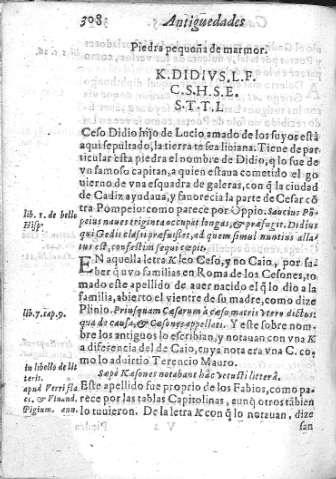 308 Antiguedades
Piedra pequoña de marmor.
K. DIDIVS. L. F.
C. S. H. S. E.
S. T. T. L
Ceso Didio hijo de Lucio amado de los suyos està
aqui sepultado, la tierra te sea liviana. Tiene de par-
ticular esta piedra el nombre de Didio, q̃ lo fue de
vn famoso capitan, a quien estaua cometido el go
uierno de vna esquadra de galeras, con q̃ la ciudad
de Cadiz ayudaua, y fauorecia la parte de Cesar cõ
tra Pompeio: como parece por Oppio. Saucius Põ-
lib. 1. de bello
Hisp.
peius naues triginta occupat longas, & præfugit. Didius
qui Gedii classi præfuisset, ad quem simul nuntius alla-
tus est, confestim sequi cœpit.
EN aquella letra K leo Ceso, y no Caio, por sa-
ber q̃ uvo familias en Roma de los Cesones, to-
mado este apellido de auer nacido el q̃ lo dio a la
familia, abierto el vientre de su madre, como dize
lib. 7. cap. 9.
Plinio. Priusquam Cæsarum à cæso matris vtero dictos:
qua de causa, & Cæsones appellati. Y este sobre nom-
bre los antiguos lo escribian, y notauan con vna K
a diferencia del de Caio, cuya nota era vna C. co-
mo lo aduirtio Terencio Mauro.
in libello de lit
terit.
Sæpè Kæsones notabant hac vetusti litterâ.
apud
Este apellido fue proprio de los Fabios, como pa-
rece por las tablas Capitolinas, aunq̃ otros tãbien
Pigium. ann.
lo tuuieron. De la letra K con q̃ lo notauan, dize
san